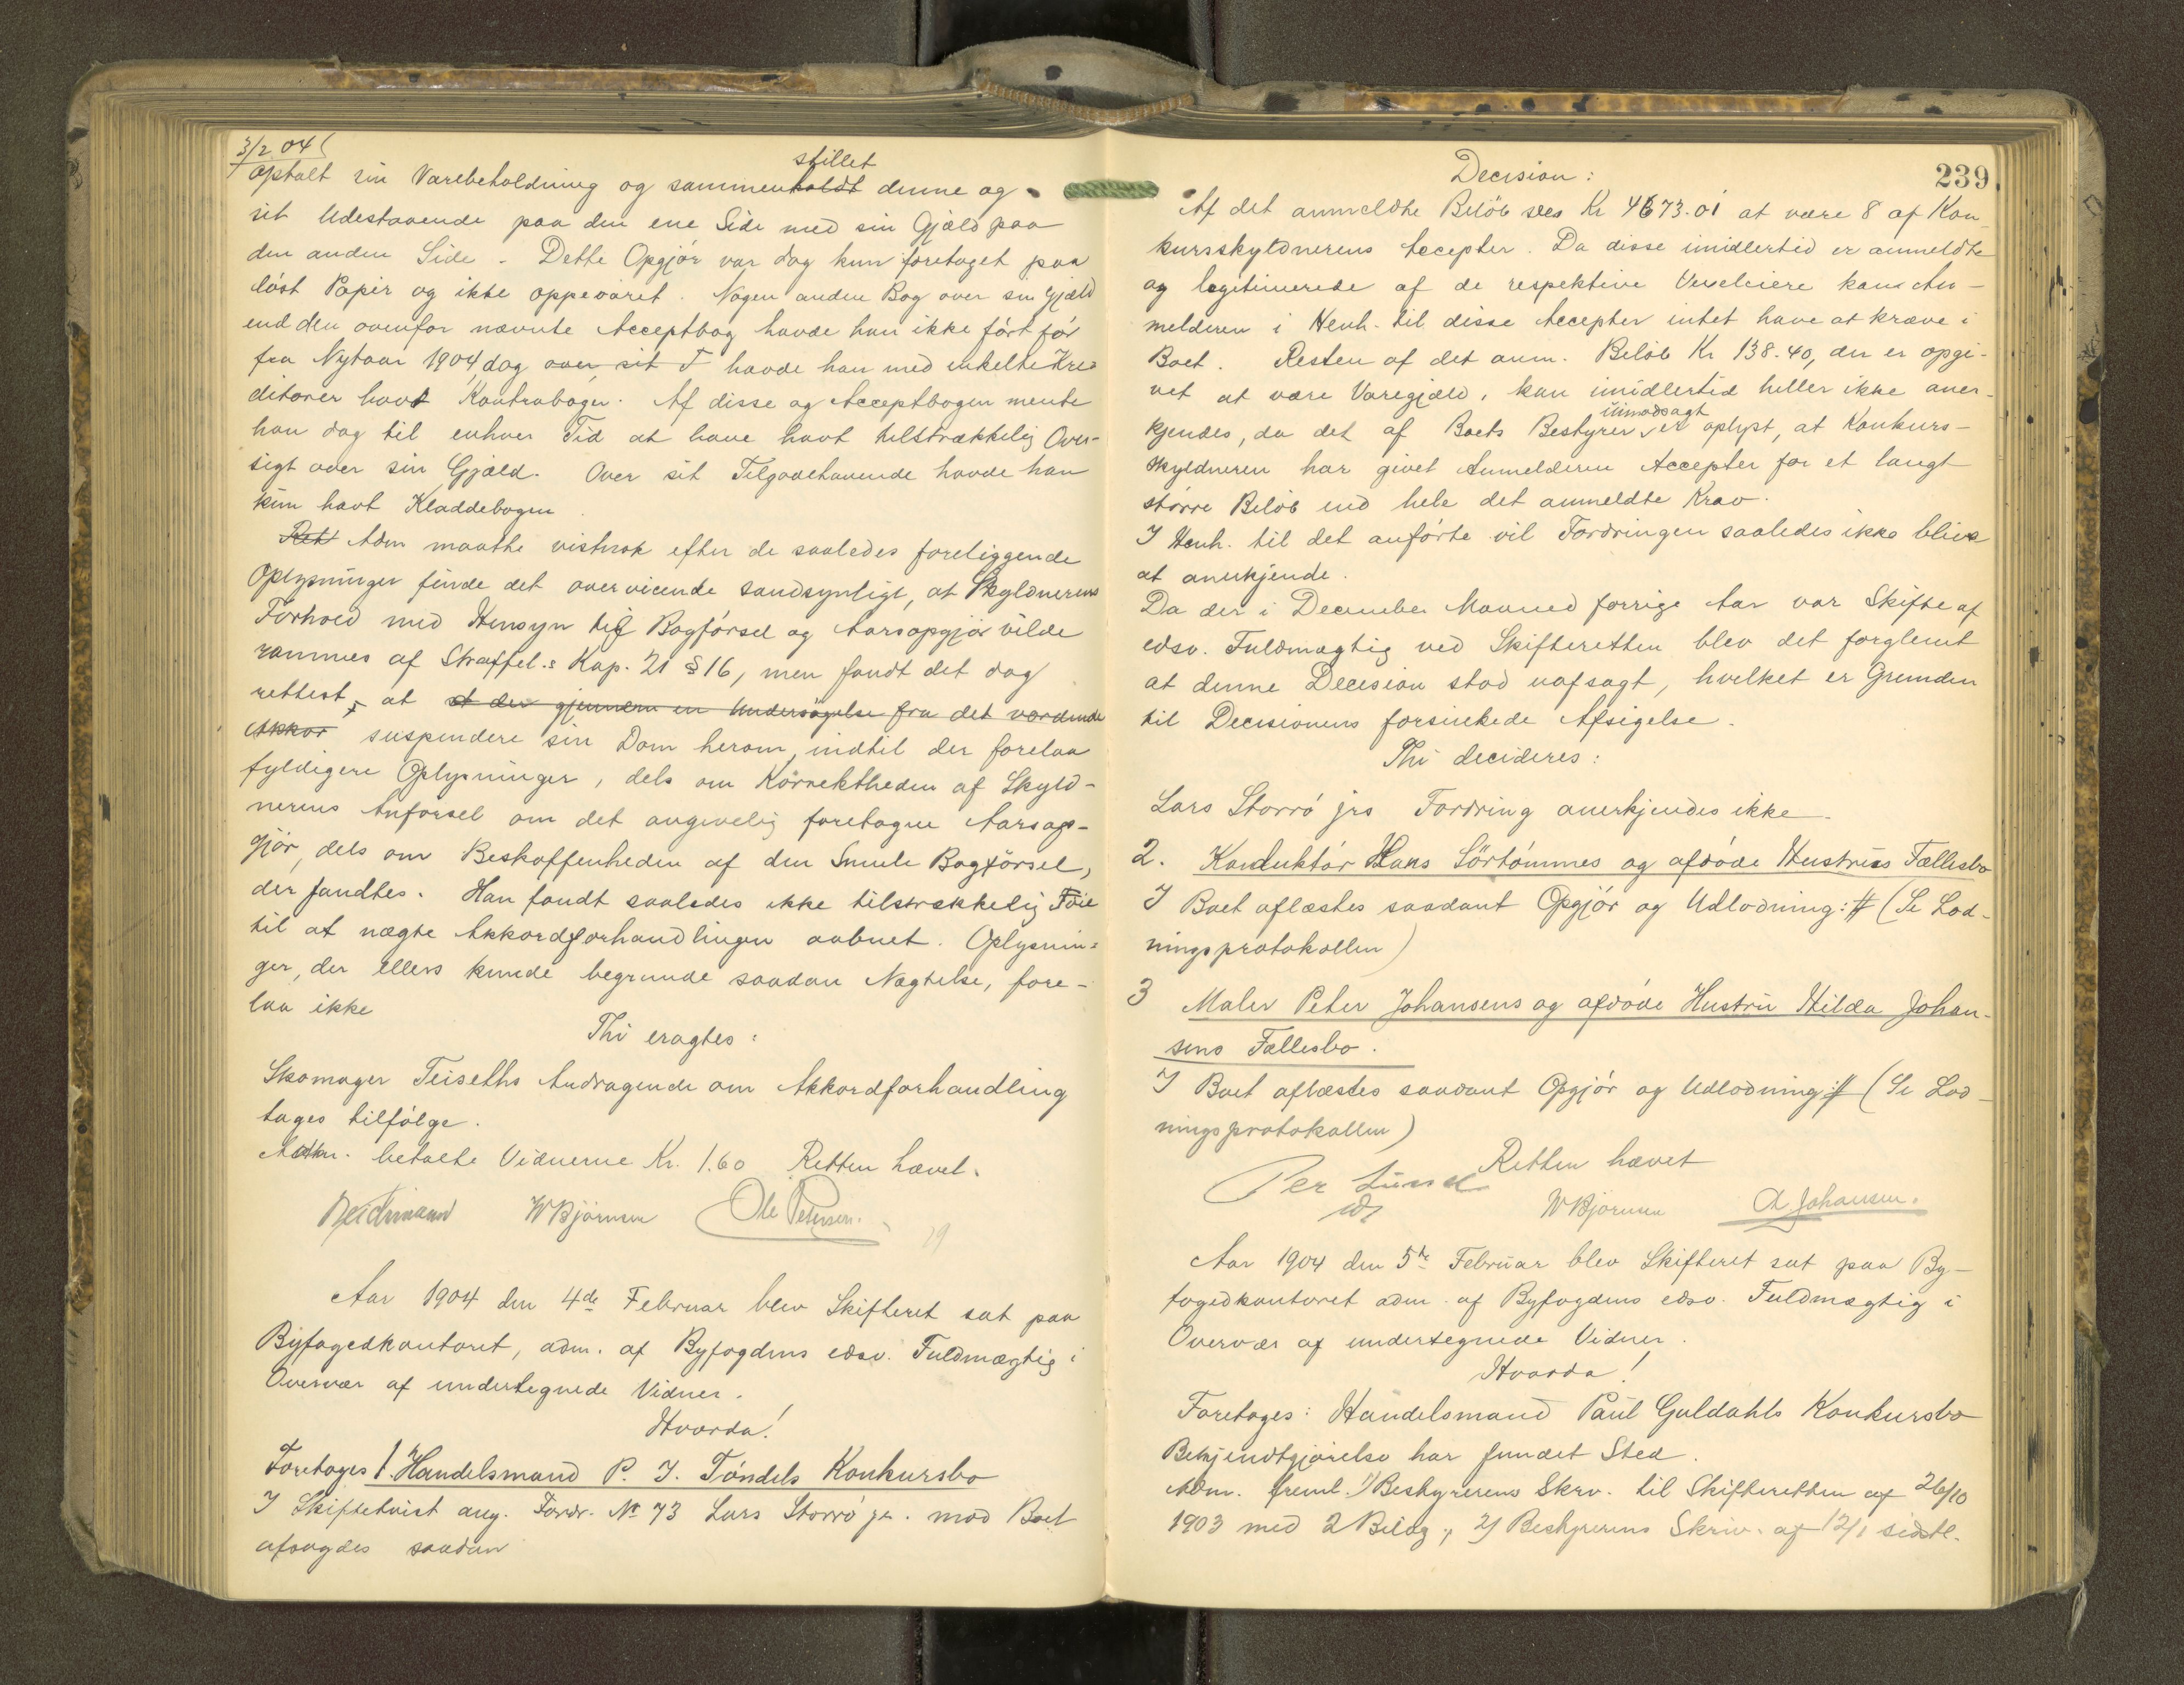 3/2 04
optalt sin Varebeholdning og sammenholdt stillet denne og
sit Udestaaende paa den ene Side med sin Gjæld paa
den anden Side - Dette Opgjör var dog kun foretaget paa
löst Papir og ikke oppevaret. Nogen anden Bog over sin Gjæld
end den ovenfor nævnte Acceptbog havde han ikke fört för
fra Nytaar 1904, dog over sit T havde han med enkelte Kre-
ditorer havt Kontraboger. Af disse og Acceptbogen mente
han dog til enhver Tid at have havt tilstrækkelig Over-
sigt over sin Gjæld. Over sit Tilgodehavende havde han
kun havt Kladdebogen
Ret Adm maatte vistnok efter de saaledes foreliggende
Oplysninger finde det overveiende sandsynligt, at Skyldnerens
Forhold med Hensyn til Bogförsel og Aarsopgjör vilde
rammes af Straffel.s Kap. 21 § 16, men fandt det dog
rettest, at at der gjennem en Undersögelse fra det vordende
Akkor suspendere sin Dom herom, indtil der forelaa
fyldigere Oplysninger, dels om Korrektheden af Skyld-
nerens Anförsel om det angivelig foretagne Aarsop-
gjör, dels om Beskaffenheden af den Smule Bogförsel,
der fandtes. Han fandt saaledes ikke tilstrækkelig Föie
til at nægte Akkordforhandlingen aabnet. Oplysnin-
ger, der ellers kunde begrunde saadan Nægtelse, fore-
laa ikke
Thi eragtes:
Skomager Teiseths Andragende om Akkordforhandling
tages tilfölge.
Adm. betalte Vidnerne Kr. 1.60 Retten hævet.
W Björnsen Ole Petersen.
29
Aar 1904 den 4de Februar blev Skifteret sat paa
Byfogedkontoret, adm. af Byfogdens edsv. Fuldmægtig i
Overvær af undertegnede Vidner.
Hvorda!
Foretages 1. Handelsmand P. J. Töndels Konkursbo
I Skiftetvist ang. Fordr. No 73 Lars Storrö jr. mod Boet
afsagdes saadan
239
Decision:
Af det anmeldte Belöb sees Kr 4673.01 at være 8 af Kon-
kursskyldnerens Accepter. Da disse imidlertid er anmeldte
og legitimerede af de respektive Vexeleiere kan An-
melderen i Henh. til disse Accepter intet have at kræve i
Boet. Resten af det anm. Belöb Kr 138.40, der er opgi-
vet at være Varegjæld, kan imidlertid heller ikke aner-
kjendes, da det af Boets Bestyrer uimodsagt er oplyst, at Konkurs-
skyldneren har givet Anmelderen Accepter for et langt
större Belöb end hele det anmeldte Krav.
I Henh. til det anförte vil Fordringen saaledes ikke blive
at anerkjende.
Da der i December Maaned forrige Aar var Skifte af
edsv. Fuldmægtig ved Skifteretten blev det forglemt
at denne Decision stod uafsagt, hvilket er Grunden
til Decisionens forsinkede Afsigelse.
Thi decideres:
Lars Storrö jrs Fordring anerkjendes ikke.
2. Konduktör Hans Sörtömmes og afdöde Hustrus Fællesbo
I Boet aflæstes saadant Opgjör og Udlodning: # (Se Lod-
ningsprotokollen)
3 Maler Peter Johansens og afdöde Hustru Hilda Johan-
sens Fællesbo.
I Boet aflæstes saadant Opgjör og Udlodning: # (Se Lod-
ningsprotokollen)
Retten hævet
Per Lund
W Bjornsen A Johansen.
Aar 1904 den 5te Februar blev Skifteret sat paa By-
fogedkontoret adm. af Byfogdens edsv. Fuldmægtig i
Overvær af undertegnede Vidner.
Hvorda!
Foretages: Handelsmand Paul Guldahls Konkursbo
Bekjendtgjörelse har fundet Sted.
Adm. freml. 1) Bestyrerens Skrv. til Skifteretten af 26/10
1903 med 2 Bilag, 2) Bestyrerens Skriv. af 12/1 sidstl.